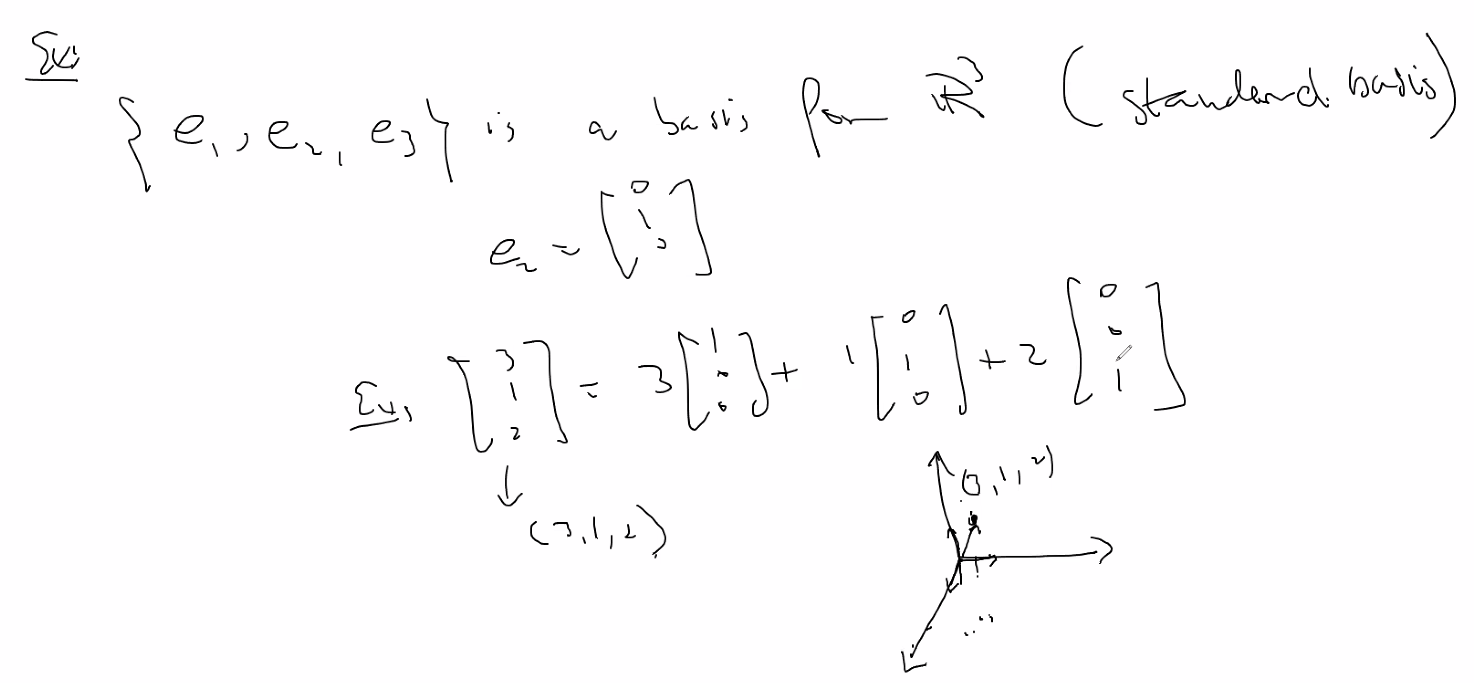 Ex:
{e₁, e₂, e₃} is a basis for ℝ³ (standard basis)
e₂ = [0 1 0]
Ex, [3 1 2] = 3 [1 0 0] + 1 [0 1 0] + 2 [0 0 1]
↓
(3, 1, 2)
(3, 1, 2)